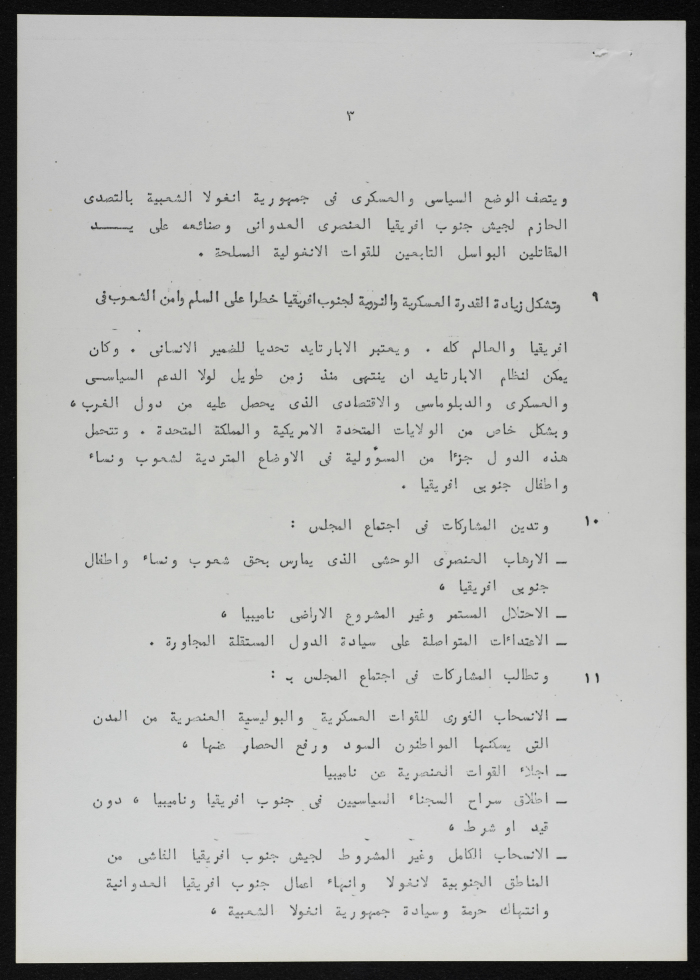 ٣
ويتصف الوضع السياسى والعسكرى فى جمهورية انغولا الشعبية بالتصدى
الحازم لجيش جنوب افريقيا العنصرى العدوانى وصنائعه على يـــــد
المقاتلين البواسل التابعين للقوات الانغولية المسلحة .
٩ وتشكل زيادة القدرة العسكرية والنووية لجنوب افريقيا خطرا على السلم وامن الشعوب فى
افريقيا والعالم كله . ويعتبر الابارتايد تحديا للضمير الانسانى . وكان
يمكن لنظام الابارتايد ان ينتهى منذ زمن طويل لولا الدعم السياســى
والعسكرى والدبلوماسى والاقتصادى الذى يحصل عليه من دول الغرب ،
وبشكل خاص من الولايات المتحدة الامريكية والمملكة المتحدة . وتتحمل
هذه الدول جزءًا من المسؤولية فى الاوضاع المتردية لشعوب ونساء
واطفال جنوبى افريقيا .
١٠ وتدين المشاركات فى اجتماع المجلس :
ـ الارهاب العنصرى الوحشى الذى يمارس بحق شعوب ونساء واطفال
جنوبى افريقيا ،
ـ الاحتلال المستمر وغير المشروع الاراضى ناميبيا ،
ـ الاعتداءات المتواصلة على سيادة الدول المستقلة المجاورة .
١١ وتطالب المشاركات فى اجتماع المجلس بـ :
ـ الانسحاب الفورى للقوات العسكرية والبوليسية العنصرية من المدن
التى يسكنها المواطنون السود ورفع الحصار عنها ،
ـ اجلاء القوات العنصرية عن ناميبيا
ـ اطلاق سراح السجناء السياسيين فى جنوب افريقيا وناميبيا ، دون
قيد او شرط ،
ـ الانسحاب الكامل وغير المشروط لجيش جنوب افريقيا الفاشى من
المناطق الجنوبية لانغولا وانهاء اعمال جنوب افريقيا العدوانية
وانتهاك حرمة وسيادة جمهورية انغولا الشعبية ،